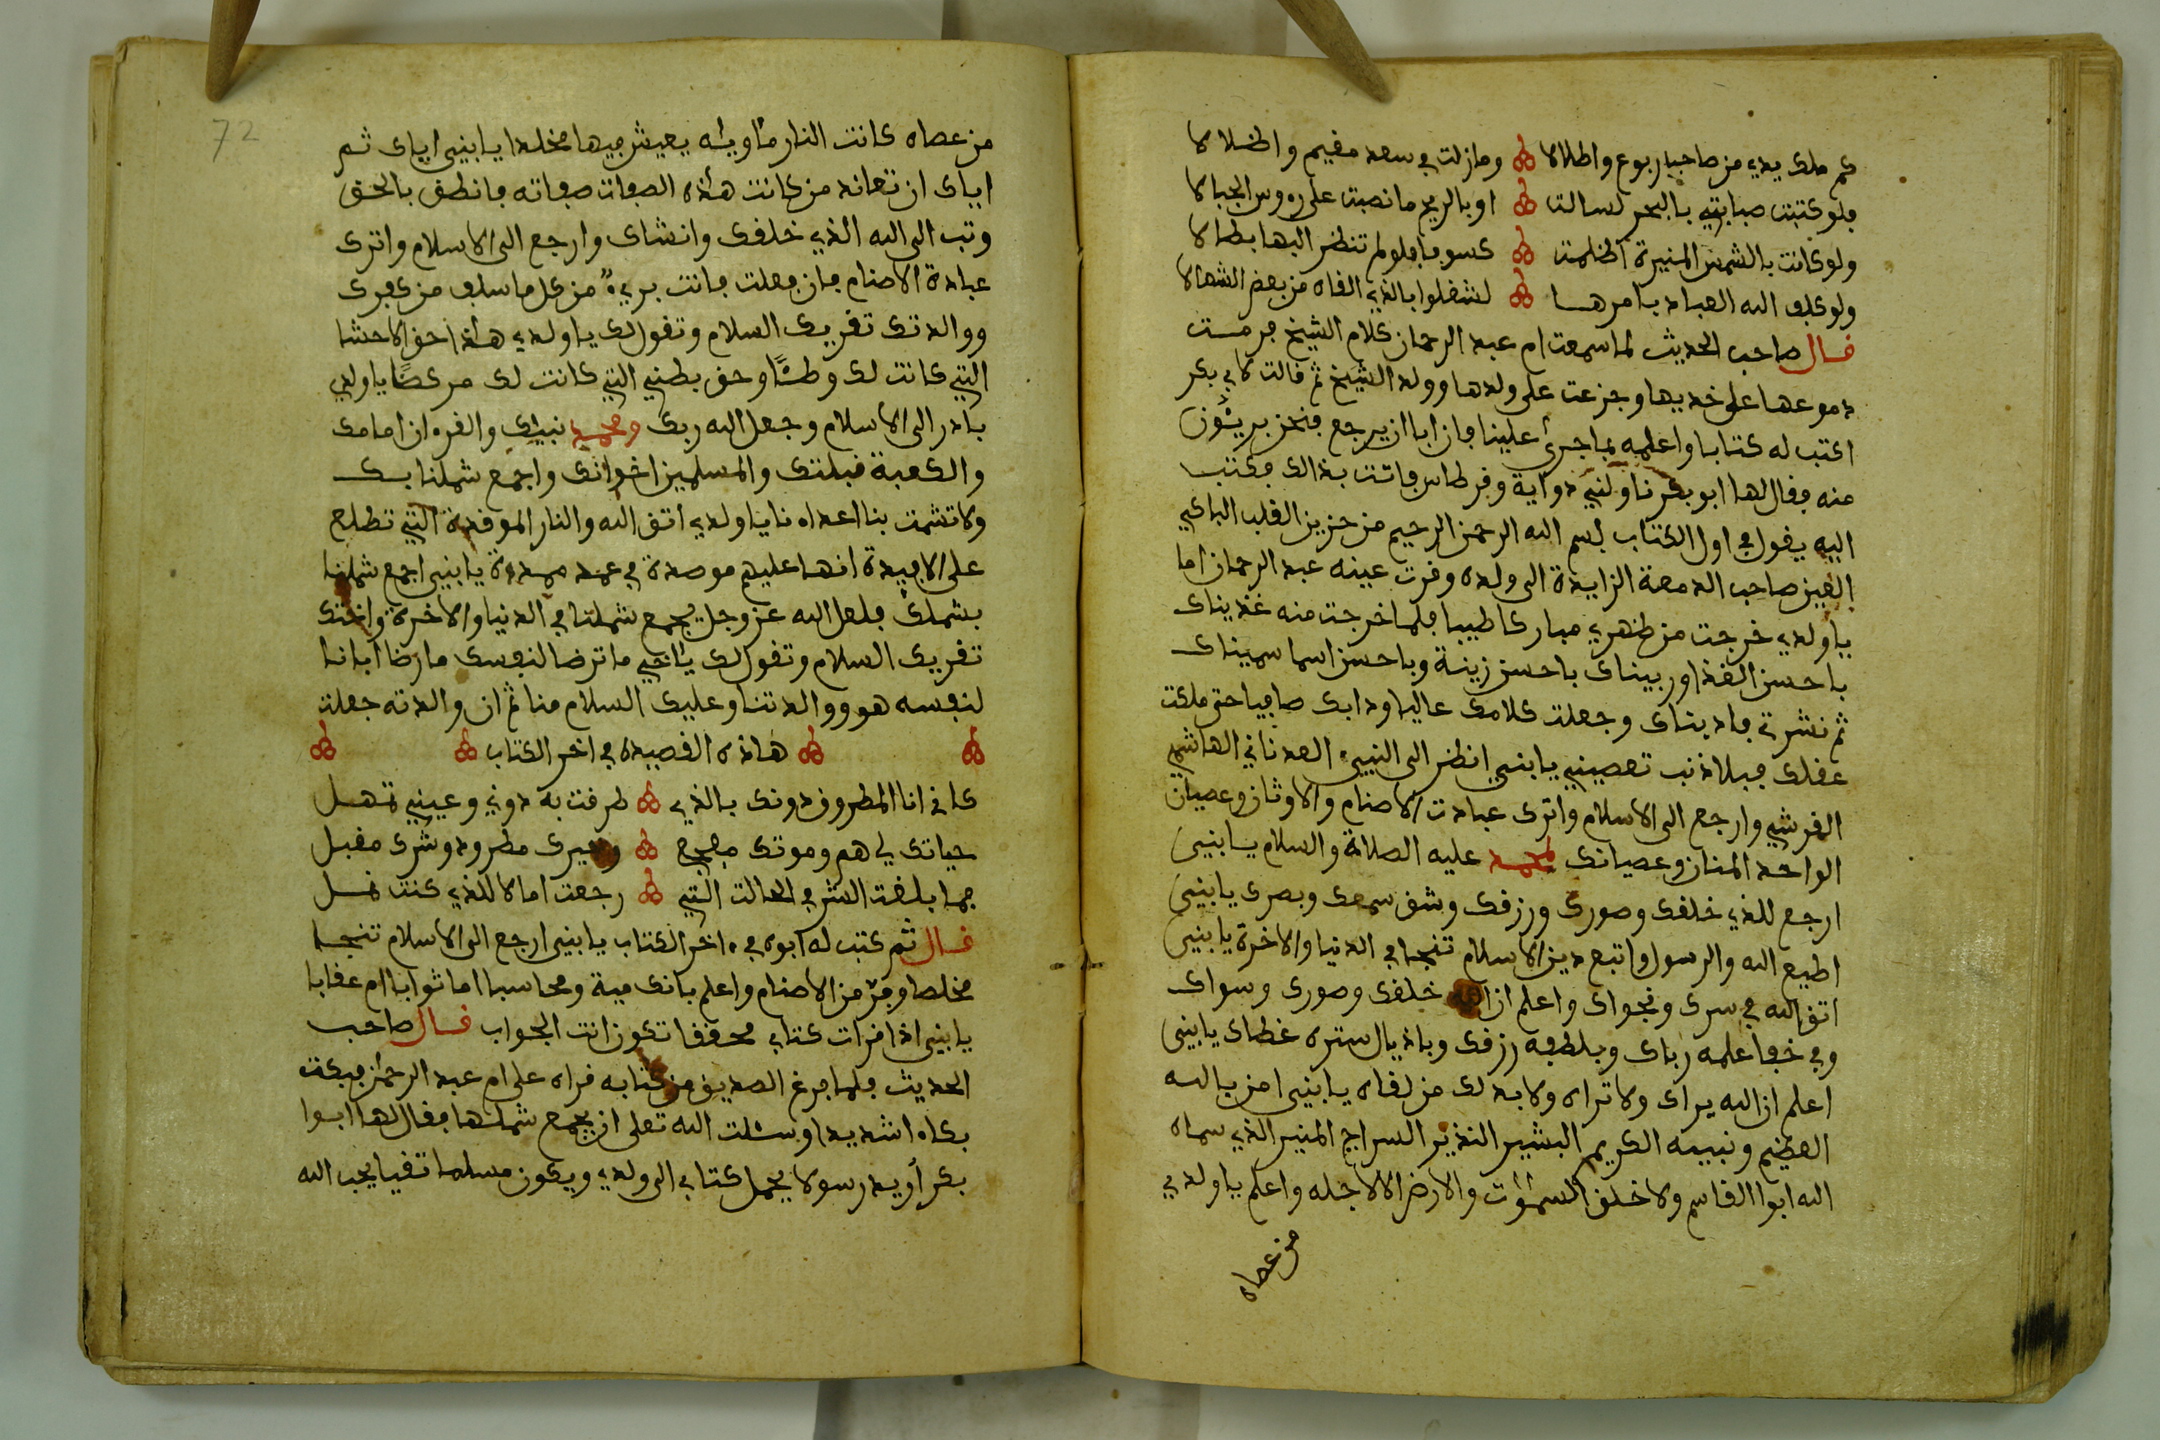 كم ملك يدي من صاحب ربوع واطلالا وما زلت في سعد مقيم واظلالا
فلو كتبت صبابتي بالبحر لسالت او بالريح ما نصبت على رءوس الجبالا
ولو كانت بالشمس المنيرة اظلمت كسوبا فلو لم تنظر اليها بطالا
ولو كلف الله العباد بامرها لشغلوا بالذي القاه من بعض الشغالا
قال صاحب الحديث لما سمعت ام عبد الرحمان كلام الشيخ جرمت
دموعها على خديها وجزعت على ولدها وولد الشيخ ثم قالت لابي بكر
اكتب له كتابا واعلمه بما جرى علينا فان ابا ان يرجع فنحن بريئون
منه فقال لها ابو بكر ناولني دواية وقرطاس فاتت بذالك فكتب
اليه يقول في اول الكتاب بسم الله الرحمن الرحيم من حزين القلب الباكي
العين صاحب الدمعة الزايدة الى ولده وقرت عينه عبد الرحمان اما
يا ولدي خرجت من ظهري مباركا طيبا فلما خرجت منه غذيناك
باحسن الغذا وربيناك باحسن زينة وباحسن اسما سميناك
ثم نشرتي فاديناك وجعلت كلامك عاليا ودابك صافيا حتى ملكت
عقلك فبلا ذنب تعصيني يا بني انظر الى النبيء العدناني الهاشمي
القرشي وارجع الى الاسلام واترك عبادت الاصنام والاوثان وعصيان
الواحد المنان وعصيانك لمحمد عليه الصلاة والسلام يا بني
ارجع للذي خلقك وصورك ورزقك وشق سمعك وبصرك يا بني
اطيع الله والرسول واتبع دين الاسلام تنجا في الدنيا والاخرة يا بني
اتق الله في سرك ونجواك واعلم ان الله خلقك وصورك وسواك
وفي خفا علمه رباك وبلطفه رزقك وباذيال ستره غطاك يا بني
اعلم ان الله يراك ولا تراه ولا بد لك من لقاه يا بني امن بالله
العظيم ونبيه الكريم البشير النذير السراج المنير الذي سماه
الله ابوا القاسم ولا خلق السموات والارض الا لاجله واعلم يا ولدي
من عصاه
72
من عصاه كانت النار ماويه يعيش فيها مخلدا يا بني اياك ثم
اياك ان تعاند من كانت هذه الصفات صفاته فانطق بالحق
وتب الى الله الذي خلقك وانشاك وارجع الى الاسلام واترك
عبادة الاصنام فان فعلت فانت بريء من كل ما سلف من كفرك
ووالدتك تقريك السلام وتقول لك يا ولدي هذا حق الاحشا
التي كانت لك وطئا وحق بطني التي كانت لك مركضا يا ولدي
بادر الى الاسلام وجعل الله ربك ومحمد نبيك والقرءان امامك
والكعبة قبلتك والمسلمين اخوانك واجمع شملنا بك
ولا تشمت بنا اعداءنا يا ولدي اتق الله والنار الموقدة التي تطلع
على الافيدة انها عليهم موصدة في عمد ممددة يا بني اجمع شملنا
بشملك فلعل الله عز وجل يجمع شملنا في الدنيا والاخرة واختك
تقريك السلام وتقول لك يا اخي ما ترضا لنفسك ما رضا ابانا
لنفسه هو ووالدتنا وعليك السلام منا ثم ان والدته جعلت
هاذه القصيدة في اخر الكتاب
كاني انا المطرون دونك بالذي طرفت به دوني وعيني تهمل
حياتك لي هم وموتك مفجع وغيرك مطرود وشرك مقبل
فما بلغت الشر في الحالت التي رجعت امالا للذي كنت نمل
قال ثم كتب له ابوه في ءاخر الكتاب يا بني ارجع الى الاسلام تنجا
مخلصا وفر من الاصنام واعلم بانك ميت ومحاسبا اما ثوابا ام عقابا
يا بني اذا قرات كتابي محققا تكون انت الجواب قال صاحب
الحديث فلما فرغ الصديق من كتابه قراه على ام عبد الرحمن فبكت
بكاء شديدا وسئلت الله تعلى ان يجمع شملها فقال لها ابوا
بكر أريد رسولا يحمل كتابي الى ولدي ويكون مسلما تقيا يحب الله